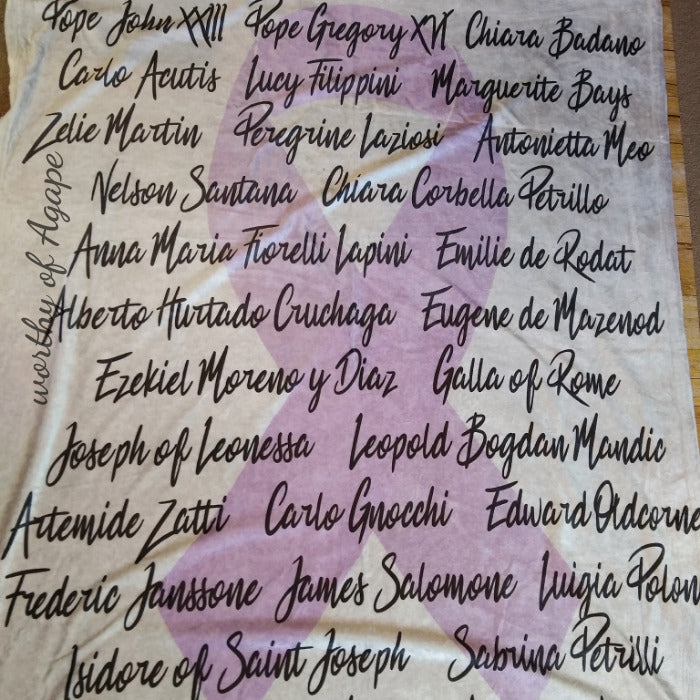 Pope John XXIII Pope Gregory XVI Chiara Badano
Carlo Acutis Lucy Filippini Marguerite Bays
Zelie Martin Peregrine Laziosi Antonietta Meo
Nelson Santana Chiara Corbella Petrillo
Anna Maria Fiorelli Lapini Emilie de Rodat
Alberto Hurtado Cruchaga Eugene de Mazenod
Ezekiel Moreno y Diaz Galla of Rome
Joseph of Leonessa Leopold Bogdan Mandic
Artemide Zatti Carlo Gnocchi Edward Oldcorne
Frederic Janssone James Salomone Luigia Polon
Isidore of Saint Joseph Sabrina Petrilli
worthy of Agape